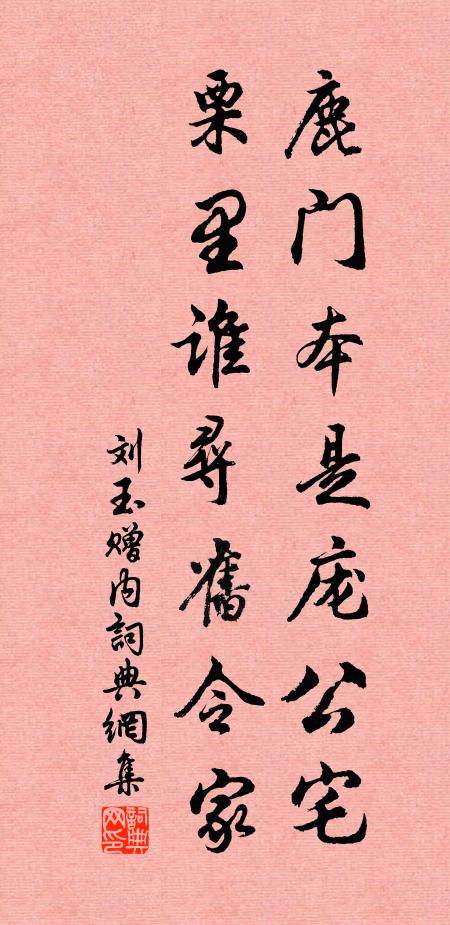 鹿门本是庞公宅
栗里谁寻舊令家
刘玉赠内詞典網集
詞典
网印